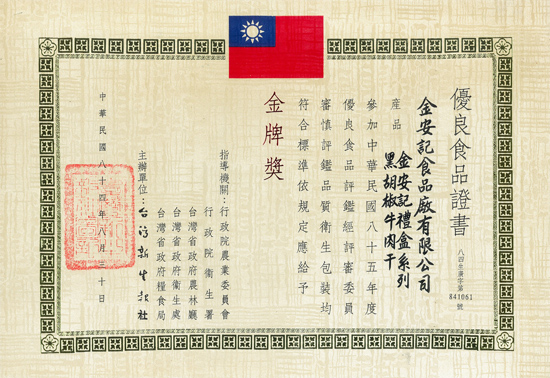 優良食品證書
八四生廣字第841061號
金安記食品廠有限公司
產品
金安記禮盒系列
黑胡椒牛肉干
參加中華民國八十五年度
優良食品評鑑經評審委員
審慎評鑑品質衛生包裝均
符合標準依規定應給予
金牌獎
指導機關：行政院農業委員會
行政院衛生署
台灣省政府農林廳
台灣省政府衛生處
台灣省政府糧食局
主辦單位：台灣新生報社
中華民國八十四年八月三十日